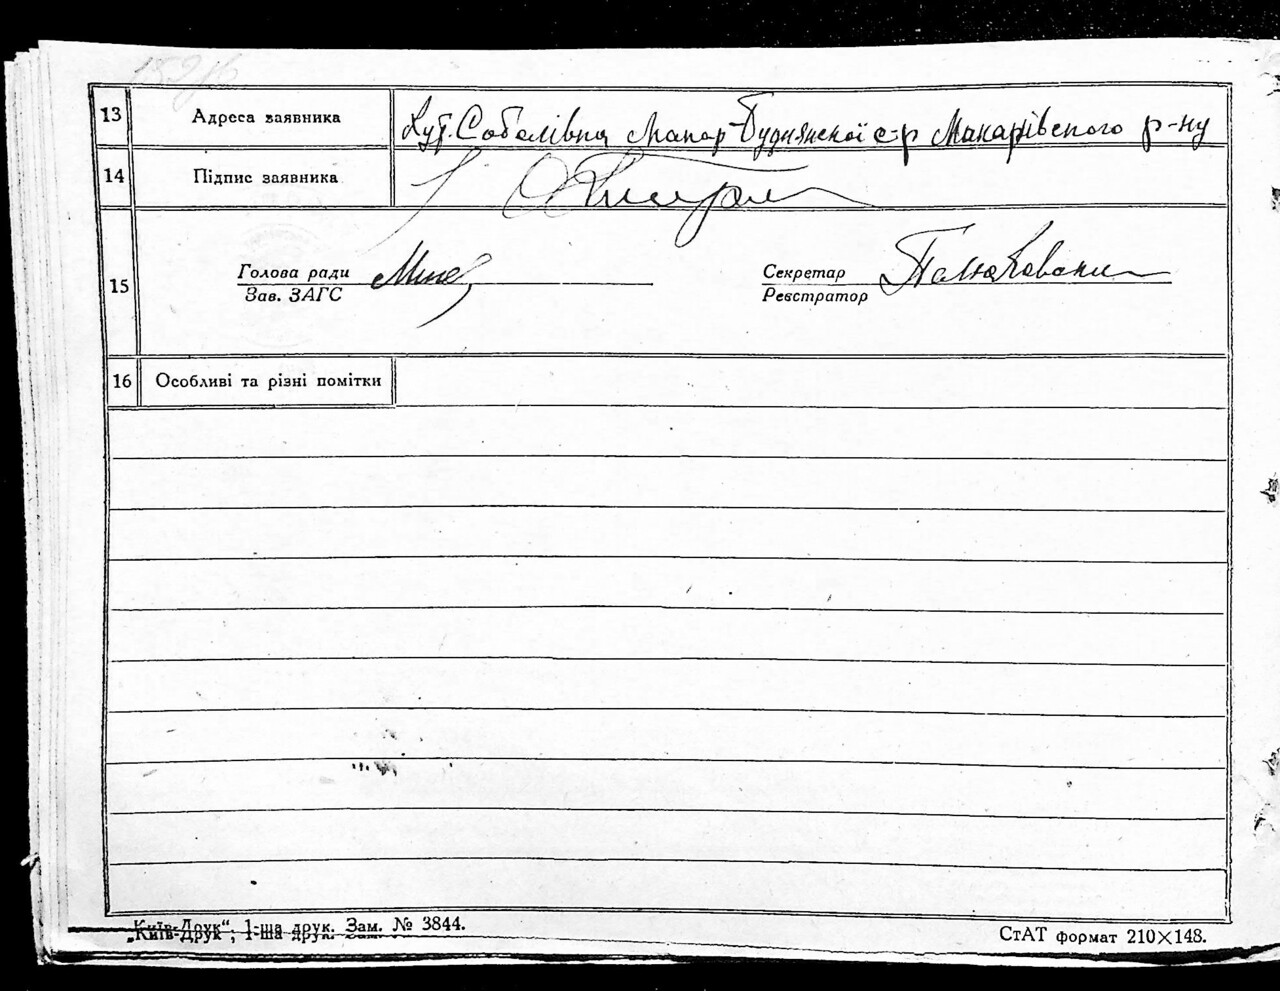 13 Адреса заявника Хут. Соболівка Макар-Будянської с-р Макарівського р-ну
14 Підпис заявника
15 Голова ради Секретар
Зав. ЗАГС Реєстратор
16 Особливі та різні помітки
„Київ-Друк“, 1-ша друк. Зам. № 3844. СтАТ формат 210×148.